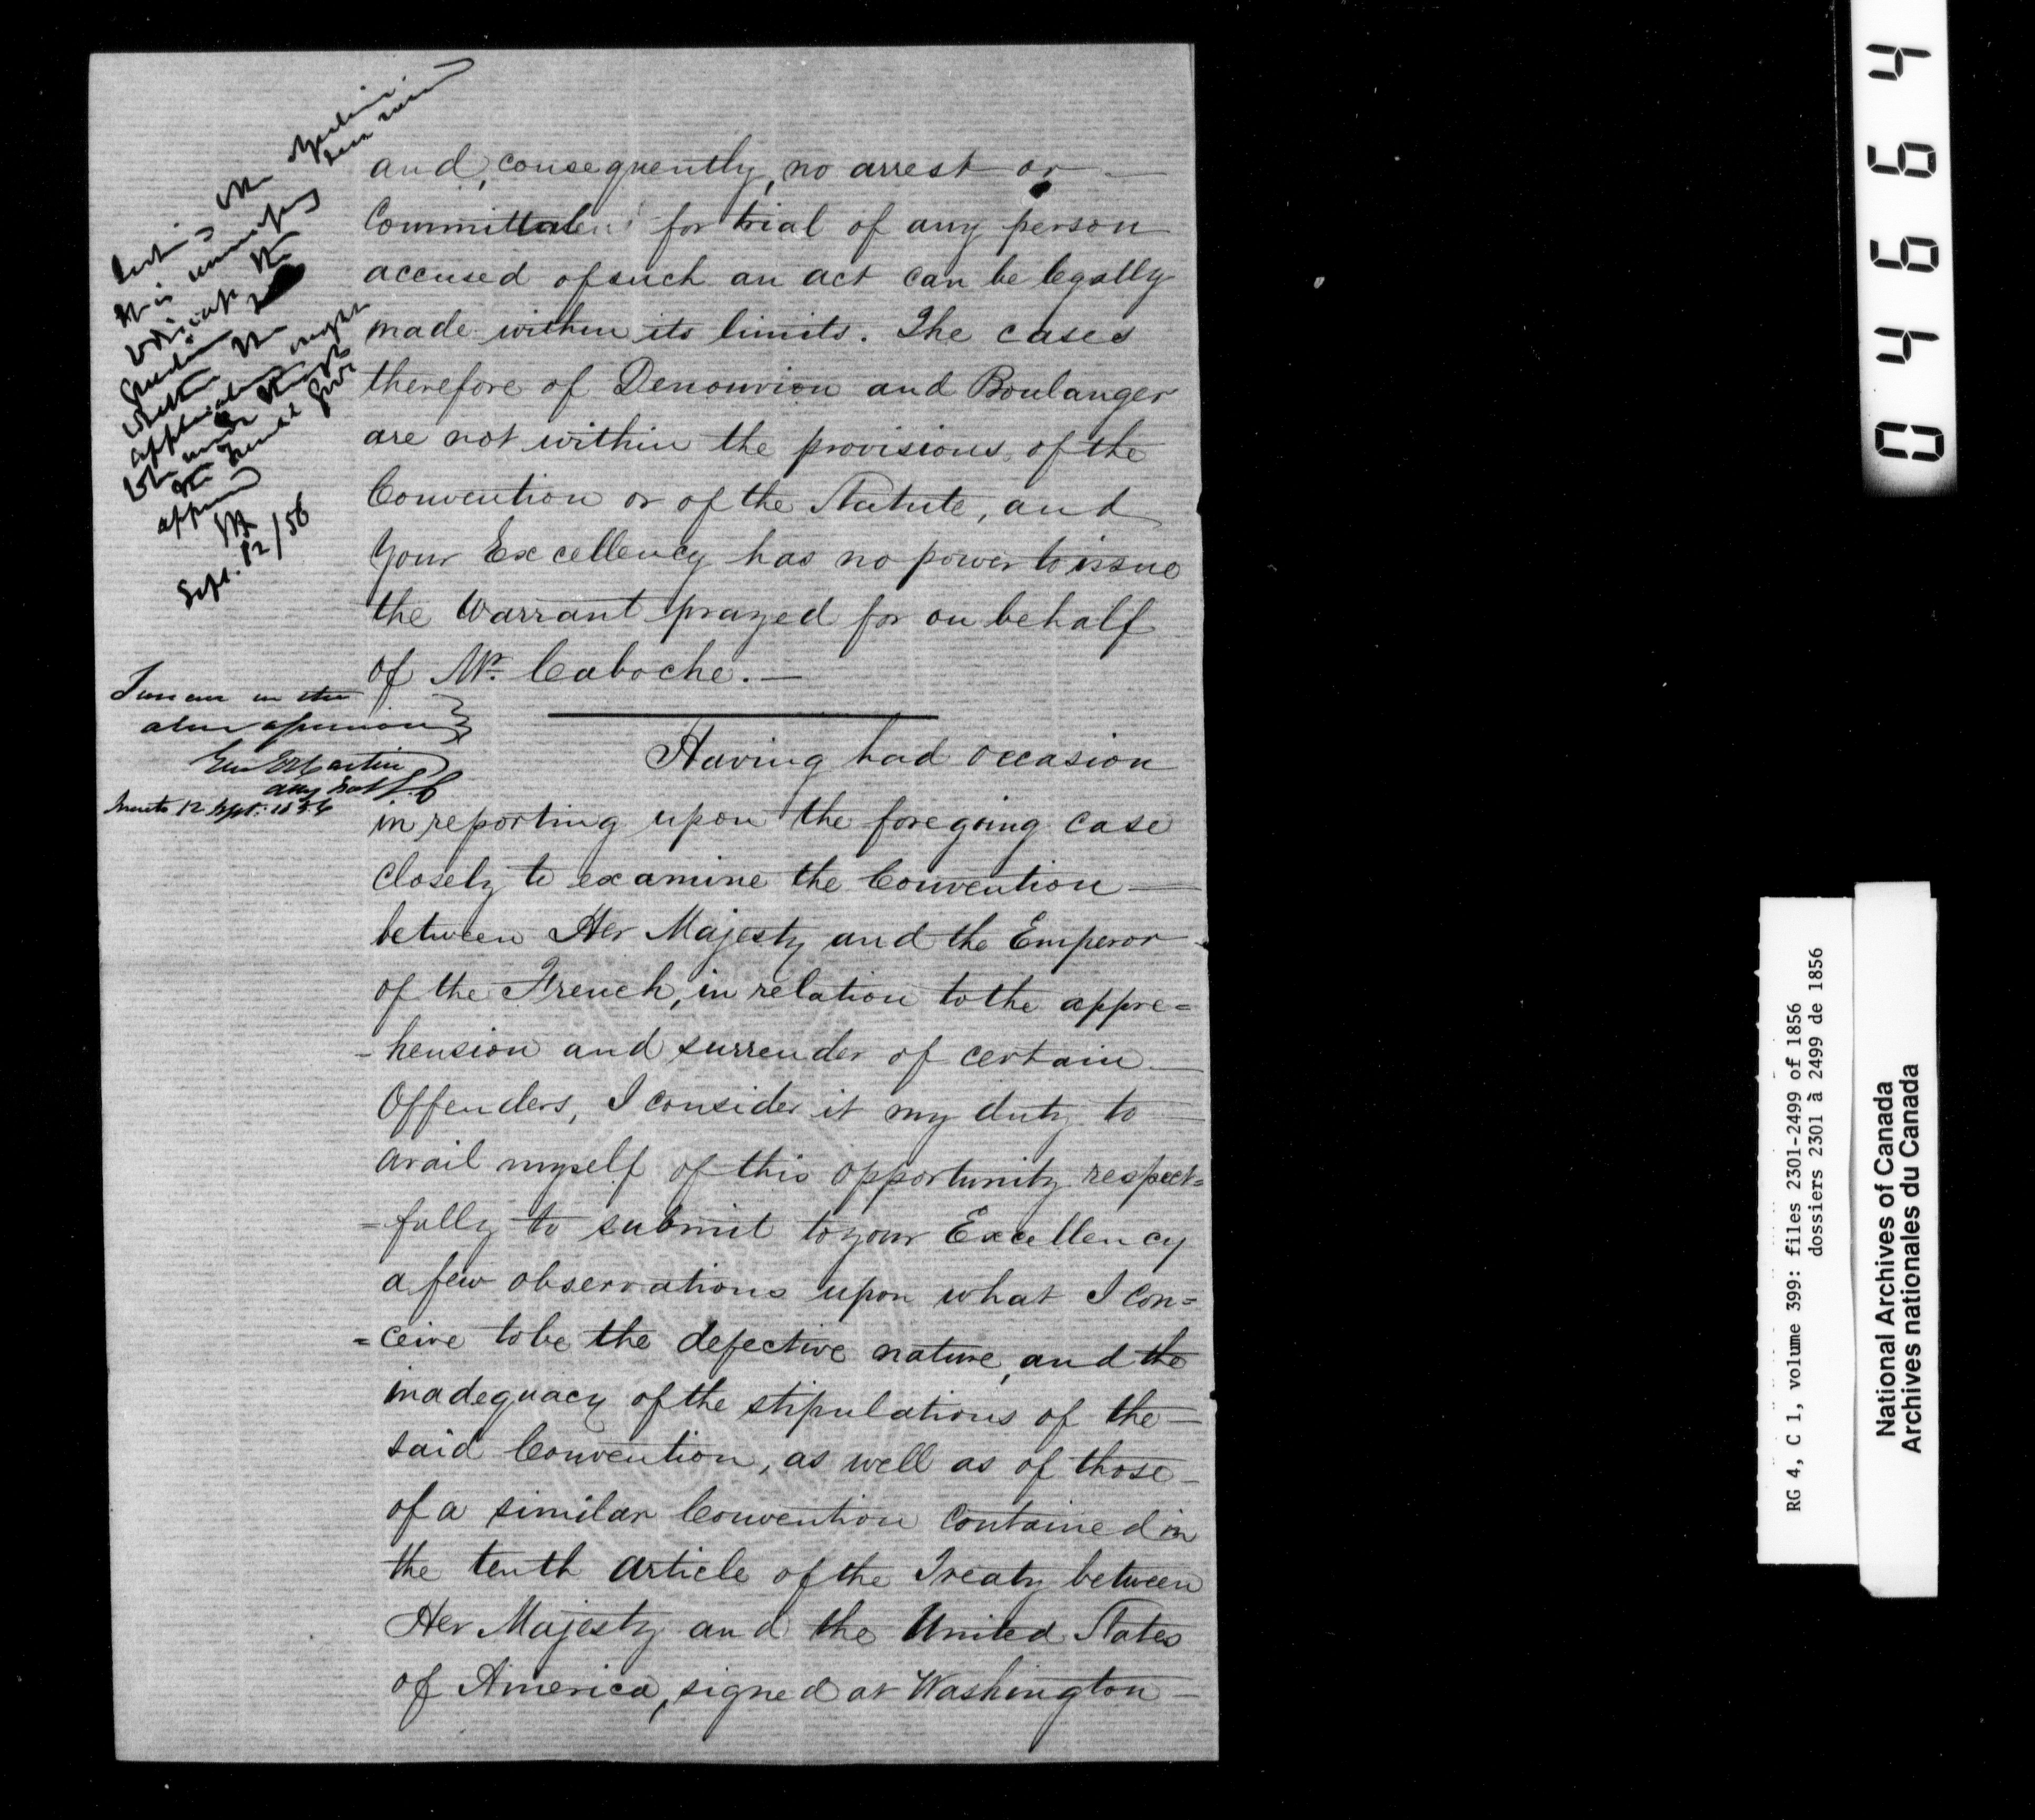 and, consequently, no arrest or —
Committal for trial of any person
accused of such an act can be legally
made within its limits. The cases
therefore of Denouvion and Boulanger
are not within the provisions of the
Convention or of the Statute, and
Your Excellency has no power to issue
the Warrant prayed for on behalf
of Mr. Caboche. —
Having had occasion
in reporting upon the foregoing case
closely to examine the Convention —
between Her Majesty and the Emperor
of the French, in relation to the appre=
-hension and surrender of certain —
Offenders, I consider it my duty to —
avail myself of this opportunity respect=
=fully to submit to your Excellency
a few observations upon what I con=
=ceive to be the defective nature, and the
inadequacy of the stipulations of the —
said Convention, as well as of those —
of a similar Convention contained in
the tenth article of the Treaty between
Her Majesty and the United States
of America, signed at Washington —
it is unnecessary
the
question
whether the
application might
be made through
the
Sept. 12/56
I concur in the
above opinion
12 Sept. 1856
04664
RG 4, C 1, volume 399: files 2301-2499 of 1856
dossiers 2301 à 2499 de 1856
National Archives of Canada
Archives nationales du Canada